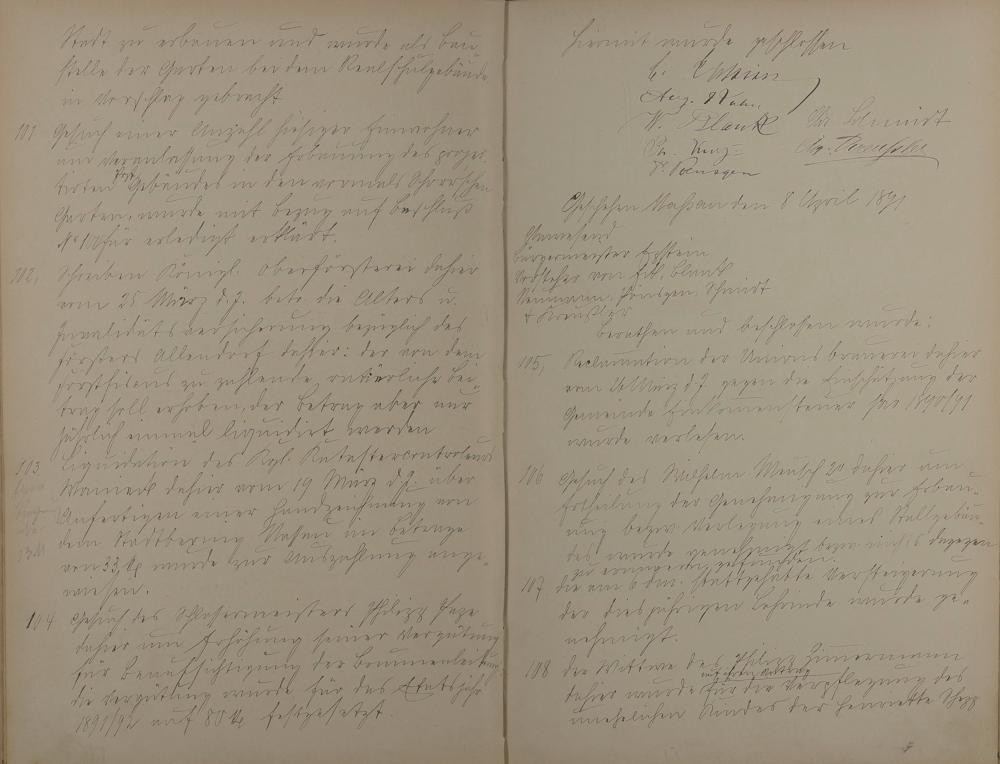 Stadt zu erbauen und wurde als Bau-
stelle der Garten bei dem Realschulgebäude
in Vorschlag gebracht
101 Gesuch einer Anzahl hiesiger Einwohner
um Veranlassung der Erbauung des projec-
tirten Post Gebäudes in den vormals
Garten, wurde mit Bezug auf Beschluß
No 100 für erledigt erklärt.
102, Schreiben Königl. Oberförsterei dahier
vom 25 März d. J. betr. die Alters u.
Invaliditätsversicherung bezüglich des
Försters Allendorf dahier: der von dem
Forstfiscus zu zahlende, Bei-
trag soll erhoben, der Betrag aber nur
jährlich einmal liquidirt werden
103 Liquidation des Kgl. Katastercontroleurs
dahier vom 19 März d. J. über
Anfertigen einer Handzeichnung von
dem Stadtbering Nassau im Betrage
von 33 M wurde zur Auszahlung ange-
wiesen.
104 Gesuch des Schlossermeisters Philipp
dahier um Erhöhung seiner Vergütung
für Beaufsichtigung der Brunnenleitung
die Vergütung wurde für das Etatsjahr
1891/92 auf 80 M festgesetzt
Hiermit wurde geschlossen
Aug.
W. Blank Schmidt
Geschehen Nassau den 8 April 1891
Anwesend
Bürgermeister
Vorsteher von Blank
Neumann, Schmidt
berathen und beschlossen wurde:
105, Reclamation der Unionsbrauerei dahier
vom 26 März d. J. gegen die Einschätzung der
Gemeinde Einkommensteuer pro 1890/91
wurde verlesen.
106 Gesuch des Wilhelm Meusch dahier um
Ertheilung der Genehmigung zur Erbau-
ung bezw. Verlegung eines Stallgebäu-
des wurde genehmigt bezw. nichts dagegen
zu erinnern gefunden
107 die am 6 dM. stattgehabte Versteigerung
der diesjährigen Lohrinde wurde ge-
nehmigt.
108 der Wittwe des Philipp Zimmermann
dahier wurde auf ihren Antrag für die Verpflegung des
unehelichen Kindes der Henriette